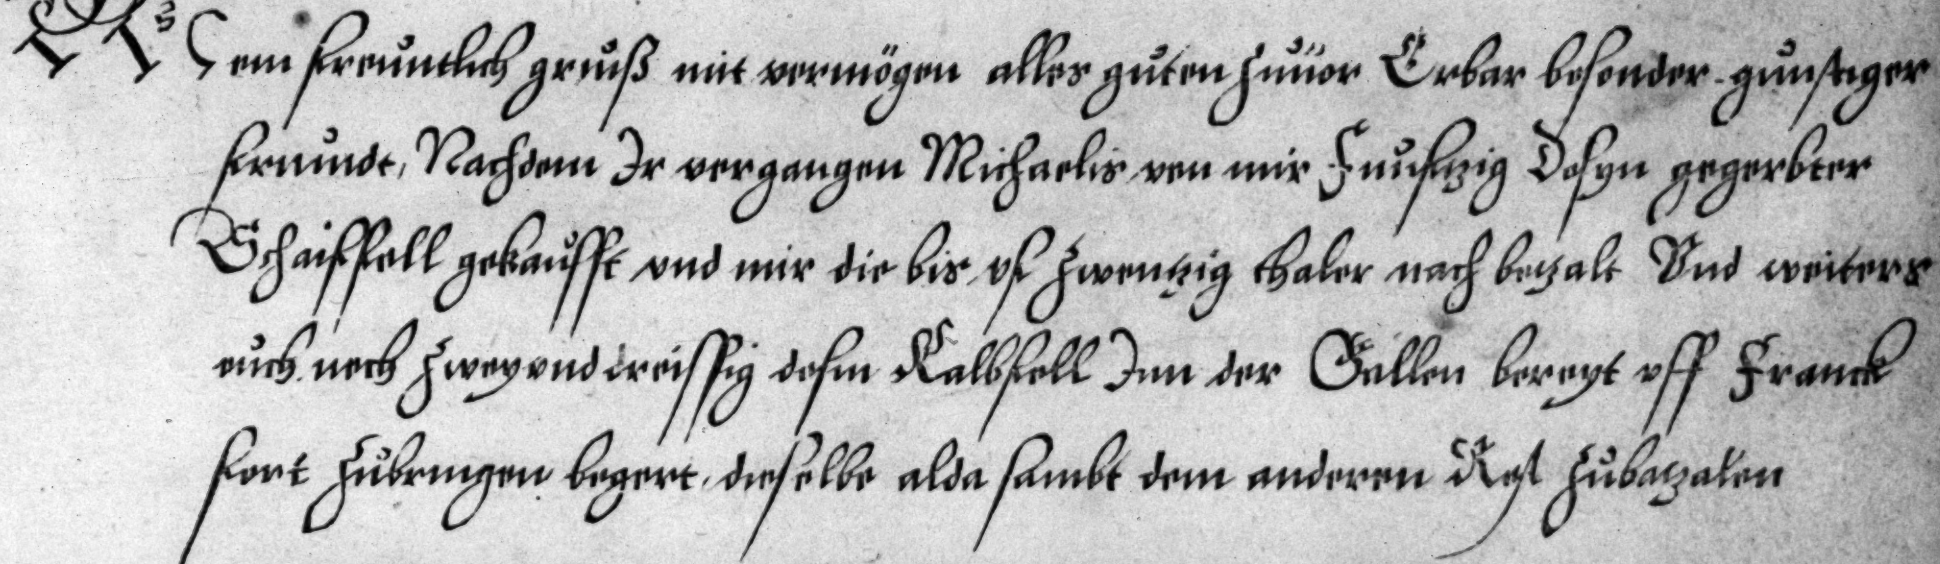 Mein freuntlich gruß mit vermögen alles guten zuuor Erbar besonder gunstiger
freundt, Nachdem Ir vergangen Michaelis von mir Funfftzig Dosyn gegerbter
Schaiffell gekaufft vnd mir die bis vf zwentzig thaler nach betzalt Vnd weiters
euch noch zweyvnd dreissig dosin Kalbfell Inn der Gallen bereyt vff Franck
fort zubringen begert, dieselbe alda sambt dem anderen Rest zubatzalen